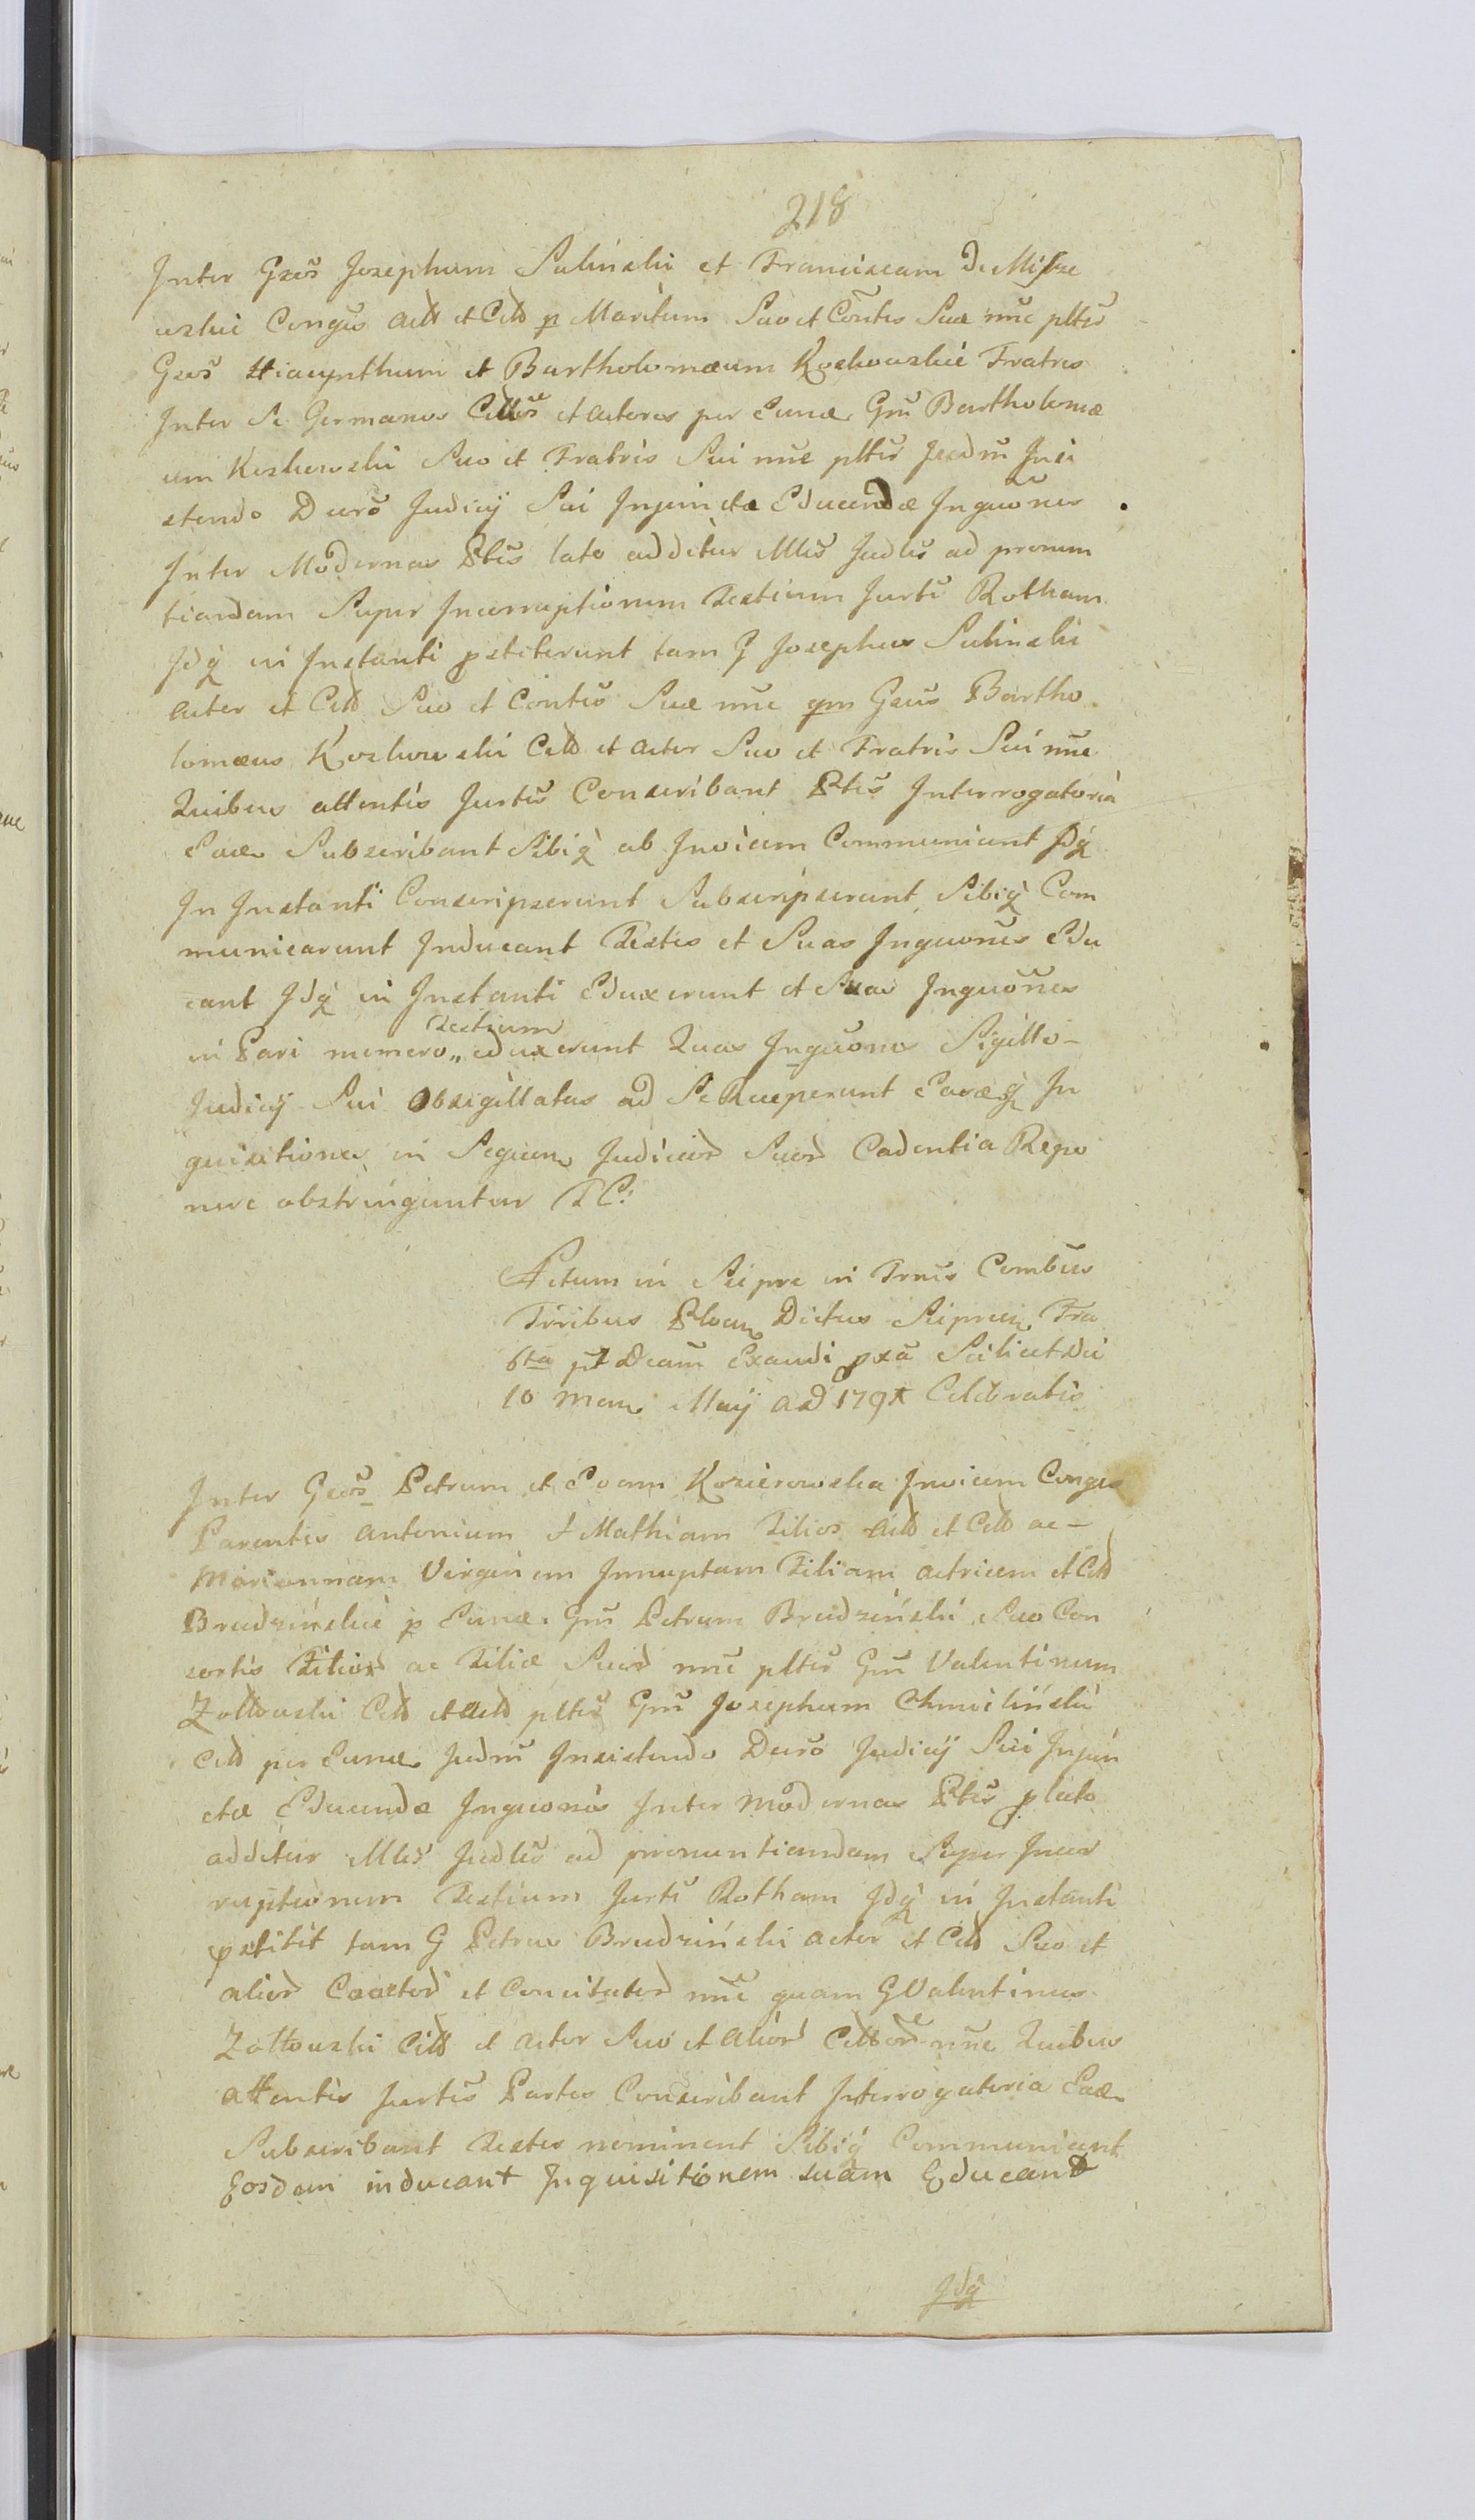 218
Inter Gsos Josephum Sulinski et Franciscam de Misze
wskie Conges Actt et Citt p Maritum Suo et Contis Suæ nne pltes
Gsos Hiacynthum et Bartholomæum Koskowskie Fratres
Inter Se Germanos Cittos et Actores per Eunde Gm Bartholomæ
um Koskowski Suo et Fratris Sui nne pltes Judm Insi
stendo Dcro Judicij Sui Injunctæ Educendæ Inquones
Inter Modernas Ptes lato additur Mlis Judlis ad pronun
tiandam Super Incorruptionem Testium Jurti Rotham
Idq in Instanti pstiterunt tam G Josephus Sulinski
Actor et Citt Suo et Contis Suæ nne qm Gsus Bartho
lomæus Koskowski Citt et Actor Suo et Fratris Sui nne
Quibus attentis Jurtis Conscribant Ptes Interrogatoria
Eade Subscribant Sibiq ab Invicem Communicent Idq
In Instanti Conscripserunt Subscripserunt Sibiq Com
municarunt Inducant Testes et Suas Inquones Edu
cant Idq in Instanti Eduxerunt et Suas Inquones
in Pari numero „ Testium eduxerunt Quas Inquones Sigillo
Judicij Sui Obsigillatas ad Se Receperunt Easq In
quisitiones in Sequen Judicior Suor Cadentia Repo
nere obstringuntur T C:
Actum in Sieprc in Trnis Combus
Trribus Plocen Dictus Sieprcen Fra
6ta pt Dcam Exaudi pxa Scilicet Die
10 Men Maij AD 179 Celebratis
Inter Gsos Petrum et Evam Kosierowska Invicem Conges
Parentes Antonium & Mathiam Filios Actt et Citt ac
Mariannam Virginem Innuptam Filiam Actricem et Citt
Brudzińskie p Eunde Gm Petrum Brudziński Suo Con
sortis Filior ac Filiæ Suor nne pltes Gm Valentinum
Zołtowski Citt et Actt pltes Gm Josephum Chmieliński
Citt per Eunde Judm Insistendo Dcro Judicij Sui Injun
ctæ Educendæ Inquonis Inter Modernas Ptes p lato
additur Mlis Judlis ad pronuntiandam Super Incor
ruptionem Testium Jurti Rotham Idq in Instanti
pstitit tam G Petrus Brudziński Actor et Citt Suo et
alior Coactor et Concitator nne quam G Valentinus
Zołtowski Citt et Actor Suo et Alior Cittor nne Quibus
attentis Jurtis Partes Conscribant Interrogatoria Eade
Subscribant Testes nominent Sibiq Communicent
Eosdem inducant Inquisitionem suam Educant
Idq